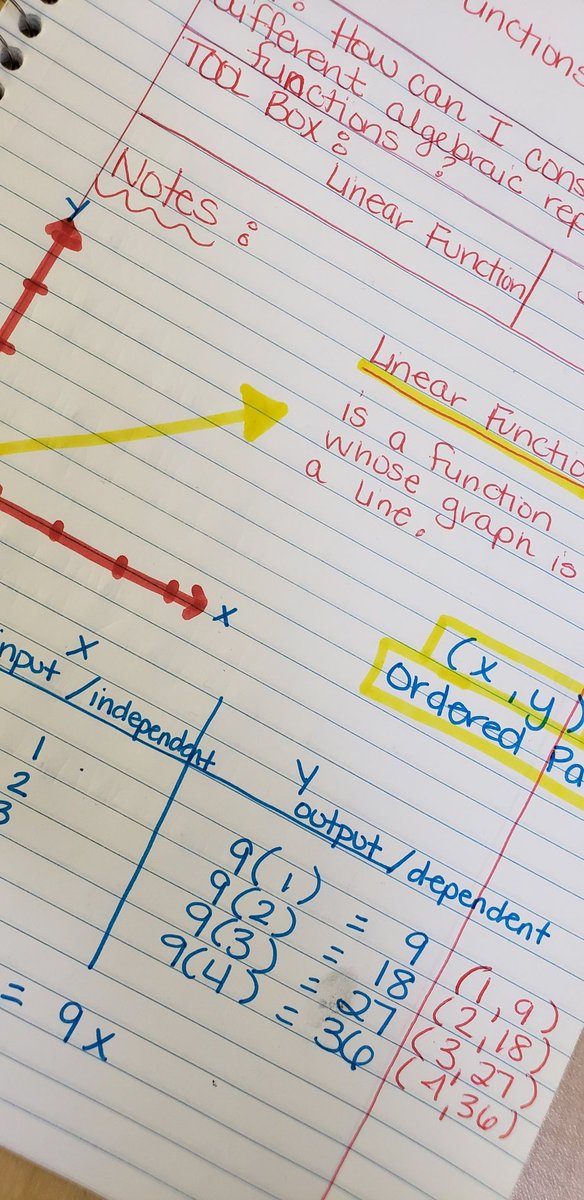 unctions
: How can I cons
different algebraic rep
functions?
TOOL BOX:
Linear Function
Notes:
Y
Linear Functio
is a function
whose graph is
a line.
X
(x, y)
Ordered Pa
X
input/independent
Y
output/dependent
1
2
3
9(1) = 9 (1, 9)
9(2) = 18 (2, 18)
9(3) = 27 (3, 27)
9(4) = 36 (4, 36)
= 9x